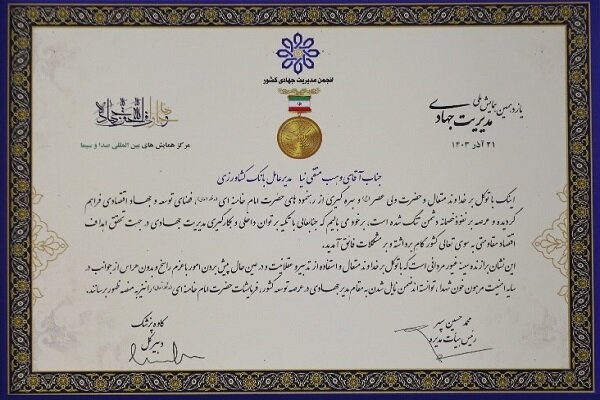 انجمن مدیریت جهادی کشور
یازدهمین همایش ملی
مدیریت جهادی
۲۱ آذر ۱۴۰۳
مرکز همایش های بین المللی صدا و سیما
جناب آقای وهب متقی نیا مدیرعامل بانک کشاورزی
اینک با توکل بر خداوند متعال و حضرت ولی عصر و بهره گیری از رهنمود های حضرت امام خامنه ای فضای توسعه و جهاد اقتصادی فراهم
گردیده و عرصه بر نفوذ خصمانه دشمن تنگ شده است، برخود می بالیم که جنابعالی با تکیه بر توان داخلی و بکارگیری مدیریت جهادی در جهت تحقق اهداف
اقتصاد مقاومتی به سوی تعالی کشور گام برداشته و بر مشکلات فائق آمدید.
این نشان برازنده سینه غیور مردانی است که با توکل بر خداوند متعال و استفاده از تدبیر و عقلانیت و در عین حال پیش بردن امور با عزم راسخ و بدون هراس از جوانب در
سایه امنیت مرهون خون شهدا، توانسته اند ضمن نائل شدن به مقام مدیر جهادی در عرصه توسعه کشور، فرمایشات حضرت امام خامنه ای را نیز به منصه ظهور برسانند.
محمد حسین سپهر
رئیس هیات مدیره
کاوه پزشک
دبیر کل